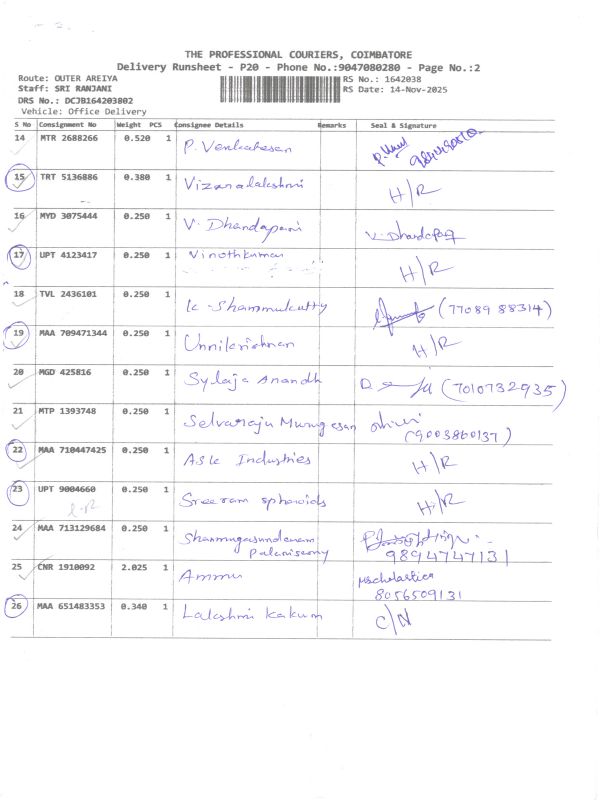 THE PROFESSIONAL COURIERS, COIMBATORE
Delivery Runsheet - P20 - Phone No.:9047080280 - Page No.:2
Route: OUTER AREIYA
RS No.: 1642038
Staff: SRI RANJANI
RS Date: 14-Nov-2025
DRS No.: DCJB164203802
Vehicle: Office Delivery
S No Consignment No Weight PCS Consignee Details Remarks Seal & Signature
14 MTR 2688266 0.520 1 P. Venkatesan
15 TRT 5136886 0.380 1 Vizayalakshmi H/R
16 MYD 3075444 0.250 1 V. Dhandapani V. Dhandapani
17 UPT 4123417 0.250 1 Vinothkumar H/R
18 TVL 2436101 0.250 1 K. Shanmukutty (77089 88314)
19 MAA 709471344 0.250 1 Unnikrishnan H/R
20 MGD 425816 0.250 1 Sylaja Anandh (7010732935)
21 MTP 1393748 0.250 1 Selvaraju Murugesan
(9003860137)
22 MAA 710447425 0.250 1 Ask Industries H/R
23 UPT 9004660 0.250 1 Sreeram spheroids H/R
24 MAA 713129684 0.250 1 Shanmugasundaram
Palanisamy 9894747131
25 CNR 1910092 2.025 1 Ammu
8056509131
26 MAA 651483353 0.340 1 Lakshmi Kakum C/N